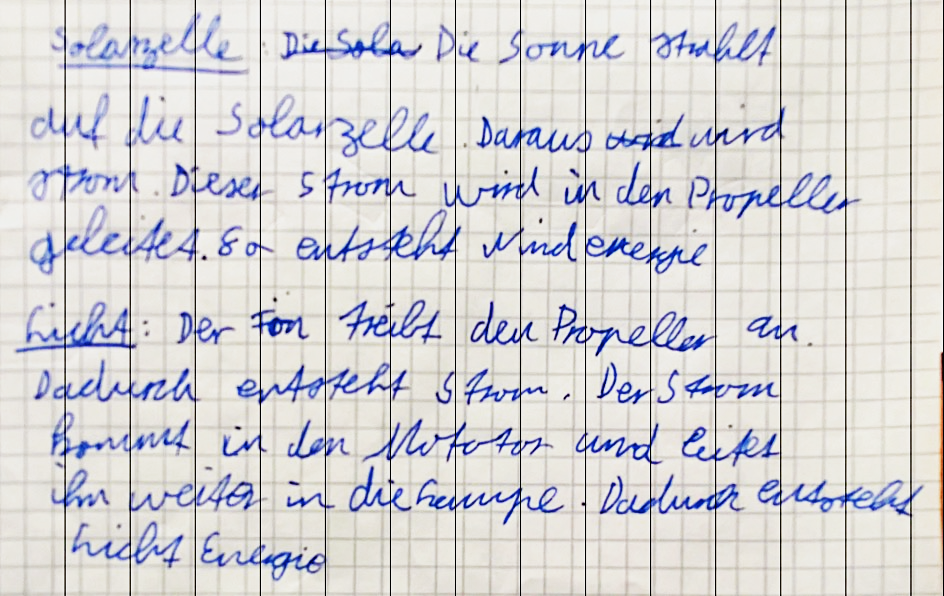 Solarzelle : Die Sola Die Sonne strahlt
auf die Solarzelle. Daraus wird wird
strom. Dieser Strom wird in den Propeller
geleitet. So entsteht Windenergie
Licht: Der Fön treibt den Propeller an.
Dadurch entsteht Strom. Der Strom
kommt in den Mototor und leitet
ihn weiter in die Lampe. Dadurch entsteht
Licht Energie